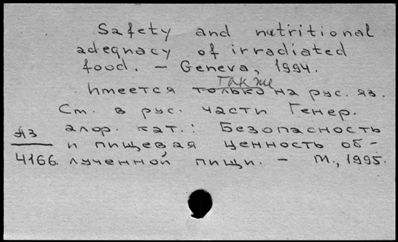 Safety and nutritional
adequacy of irradiated
food. – Geneva, 1994.
также
Имеется только на рус. яз.
См. в рус. части Генер.
алф. кат.: Безопасность
Яз
и пищевая ценность об-
4166. лученной пищи. – М., 1995.